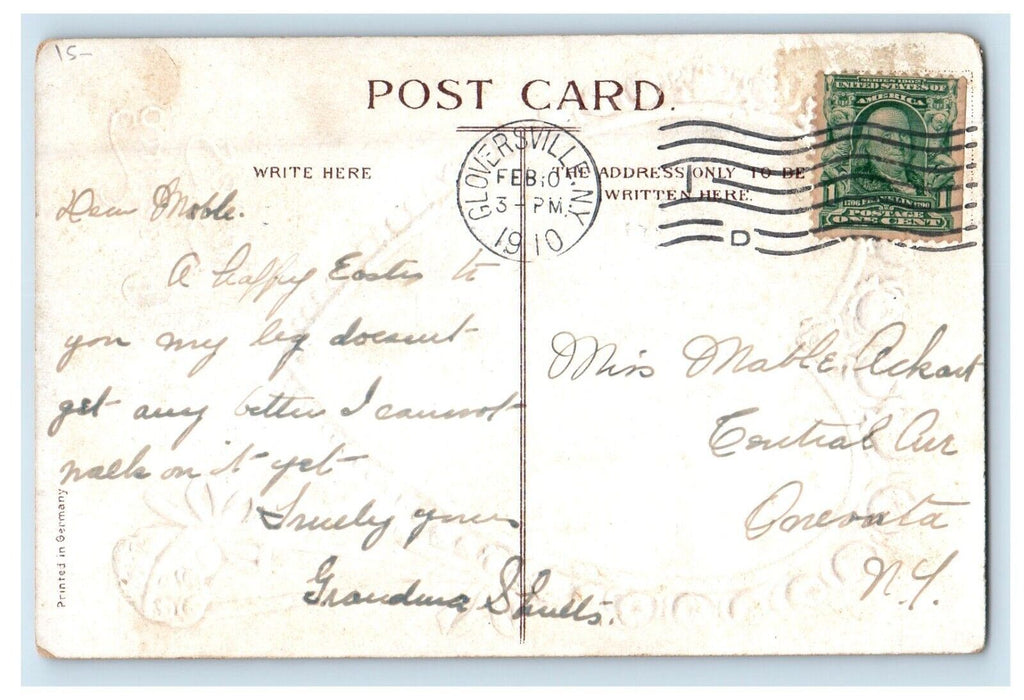 15-
POST CARD.
WRITE HERE
THE ADDRESS ONLY TO BE
WRITTEN HERE.
GLOVERSVILLE, N.Y.
FEB 10
3 - PM
1910
D
SERIES 1902
UNITED STATES OF
AMERICA
1 1
1706 FRANKLIN 1790
POSTAGE
ONE CENT
Dear Mable.
A happy Easter to
you my leg doesent
get any better I cannot
walk on it yet
Truely yours
Grandma Shults.
Miss Mable Ackart
Central Ave
Oneonta
N.Y.
Printed in Germany